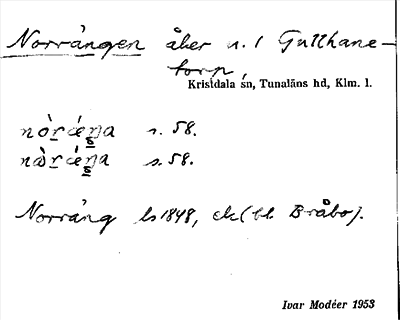 Norrängen åker n. 1 Gullhane-
torp,
Kristdala sn, Tunaläns hd, Klm. l.
s. 58.
s. 58.
Norräng ls 1848, ek (bl. Bråbo).
Ivar Modéer 1953